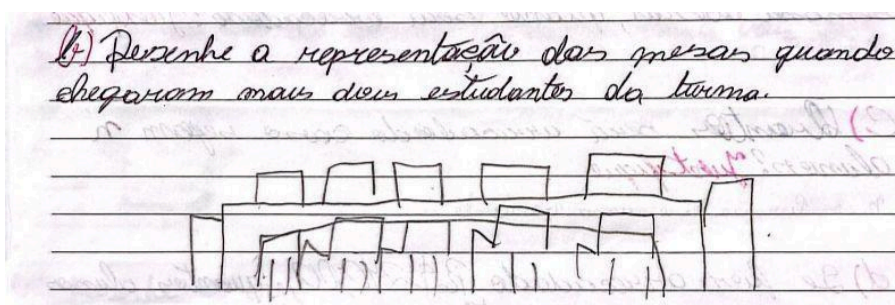 b) Desenhe a representação das mesas quando
chegaram mais dois estudantes da turma.